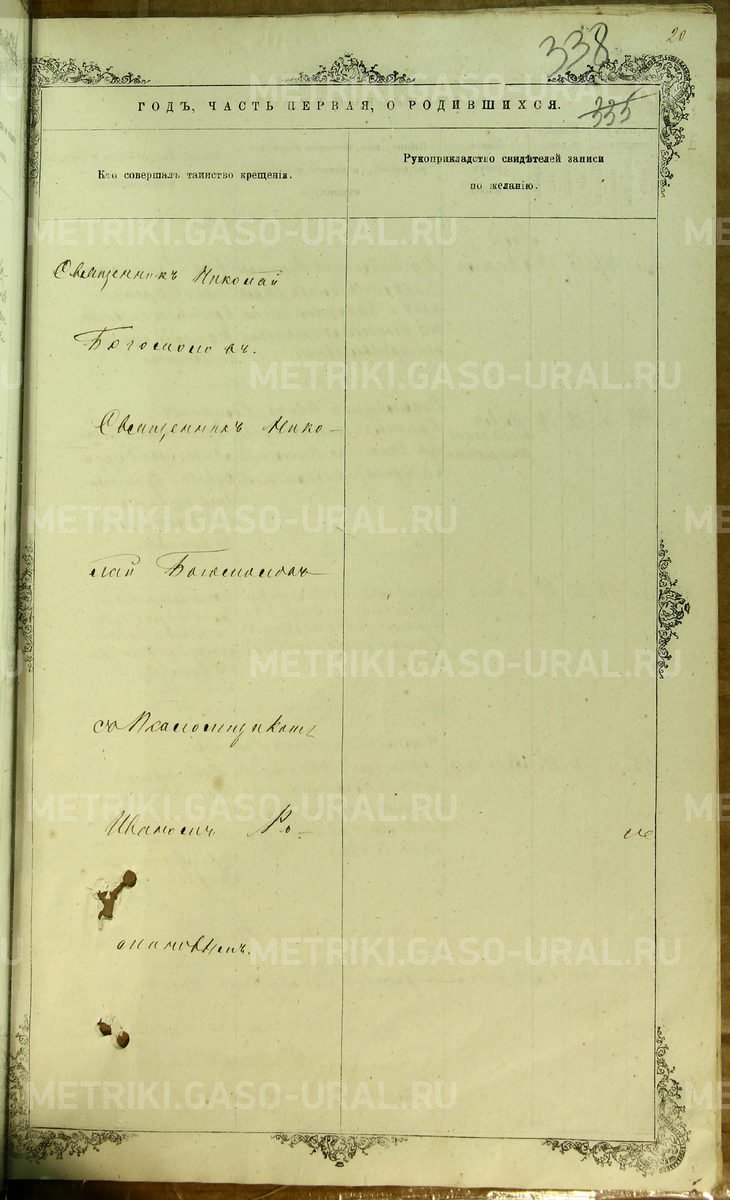 20
338
335
ГОДЪ, ЧАСТЬ ПЕРВАЯ, О РОДИВШИХСЯ.
Кто совершалъ таинство крещенія.
Рукоприкладство свидѣтелей записи
по желанію.
Священникъ Николай
Богомоловъ.
Священникъ Нико-
лай Богомоловъ
съ Псаломщикомъ
METRIKI.GASO-URAL.RU